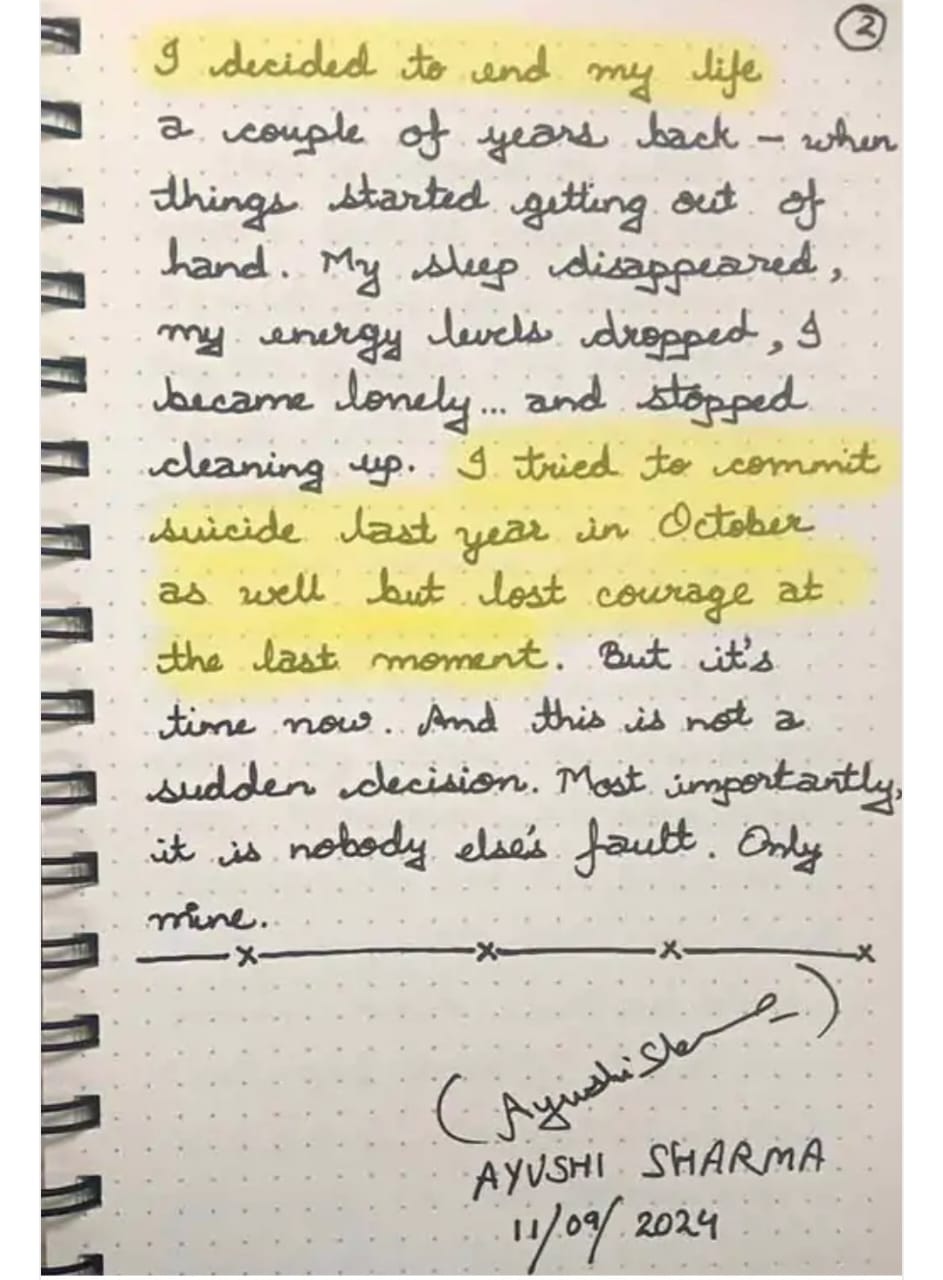 2
I decided to end my life
a couple of years back - when
things started getting out of
hand. My sleep disappeared,
my energy levels dropped, I
became lonely... and stopped
cleaning up. I tried to commit
suicide last year in October
as well but lost courage at
the last moment. But it's
time now. And this is not a
sudden decision. Most importantly,
it is nobody else's fault. Only
mine.
(Ayushi Sharma)
AYUSHI SHARMA
11/09/2024